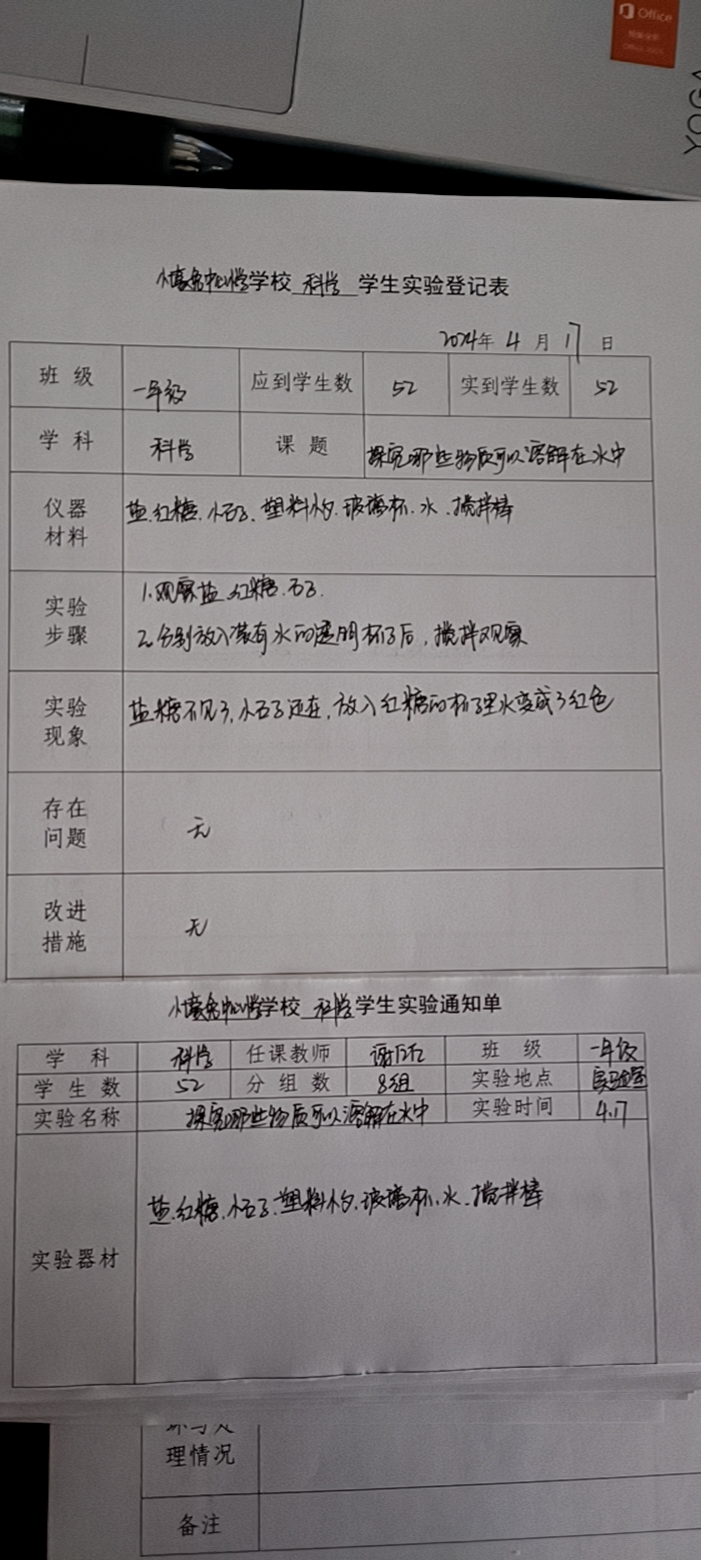 Office
YOGA
学校 科学 学生实验登记表
2024年 4 月 17 日
班级 一年级 应到学生数 52 实到学生数 52
学科 科学 课题 探究哪些物质可以溶解在水中
仪器材料 盐.红糖.小石子.塑料小勺.玻璃杯.水.搅拌棒
实验步骤 1.观察盐.红糖.石子.
2.分别放入装有水的透明杯子后,搅拌观察
实验现象 盐糖不见了,小石子还在,放入红糖的杯子里水变成了红色
存在问题 无
改进措施 无
学校 科学 学生实验通知单
学科 科学 任课教师 班级 一年级
学生数 52 分组数 8组 实验地点 实验室
实验名称 探究哪些物质可以溶解在水中 实验时间 4.17
实验器材 盐.红糖.小石子.塑料小勺.玻璃杯.水.搅拌棒
理情况
备注